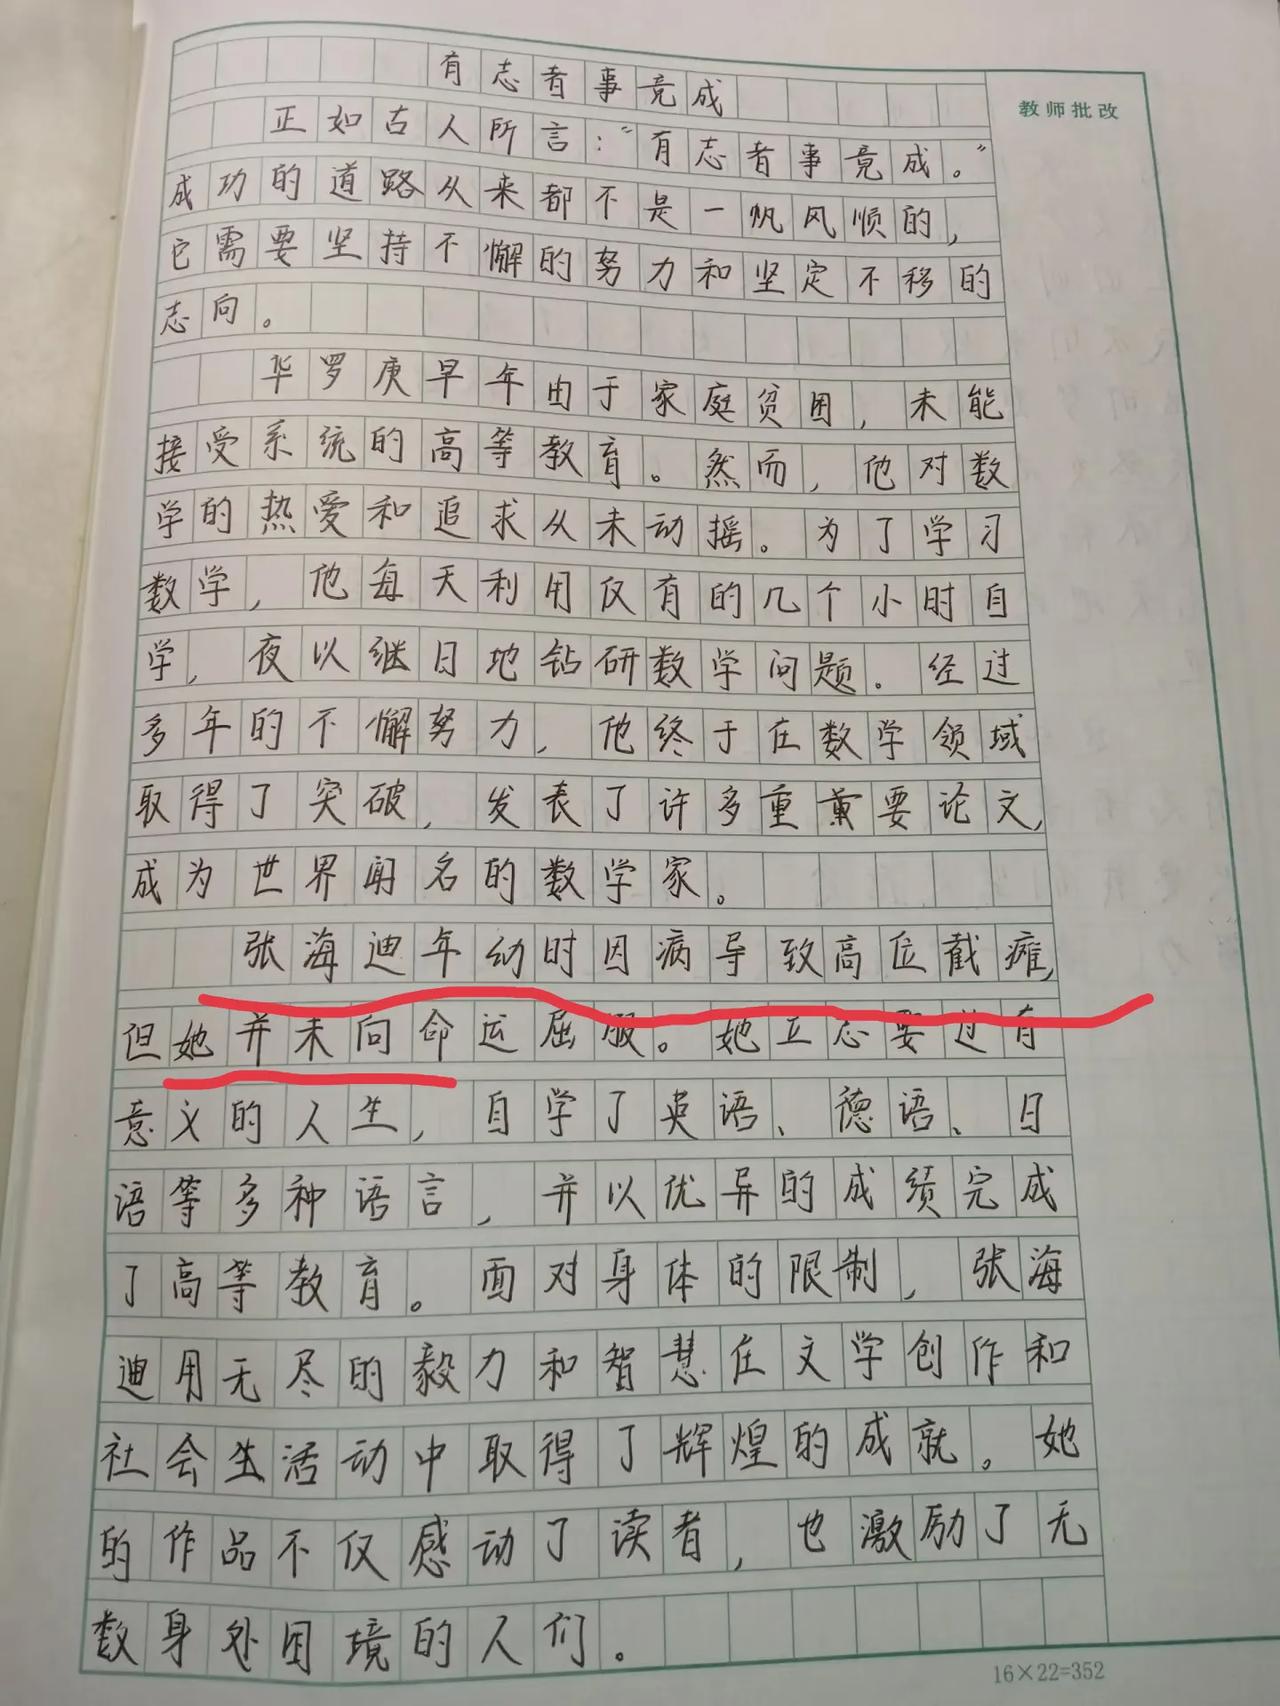 有志者事竟成
教师批改
正如古人所言：“有志者事竟成。”
成功的道路从来都不是一帆风顺的，
它需要坚持不懈的努力和坚定不移的
志向。
华罗庚早年由于家庭贫困，未能
接受系统的高等教育。然而，他对数
学的热爱和追求从未动摇。为了学习
数学，他每天利用仅有的几个小时自
学，夜以继日地钻研数学问题．经过
多年的不懈努力，他终于在数学领域
取得了突破，发表了许多重要论文，
成为世界闻名的数学家。
张海迪年幼时因病导致高位截瘫，
但她并未向命运屈服。她立志要过有
意义的人生，自学了英语、德语、日
语等多种语言，并以优异的成绩完成
了高等教育。面对身体的限制，张海
迪用无尽的毅力和智慧在文学创作和
社会生活动中取得了辉煌的成就。她
的作品不仅感动了读者，也激励了无
数身处困境的人们。
16×22=352